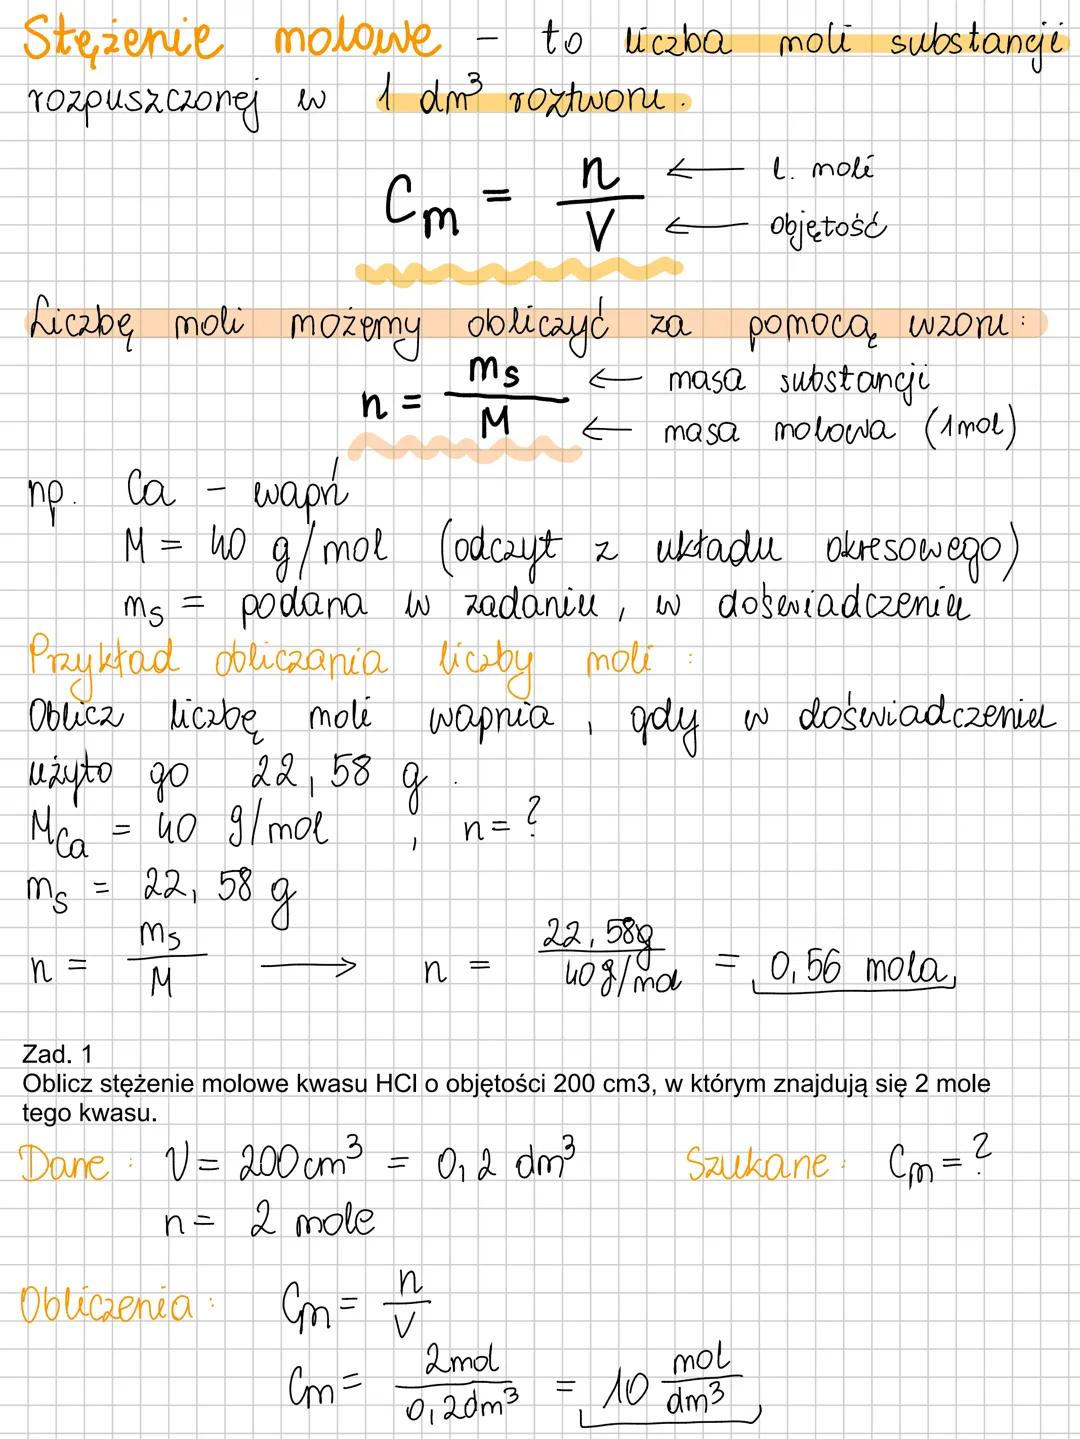 Stężenie molowe - to liczba moli substancji
rozpuszczonej w 1 dm³ roztworu.
Cm = n/V ← l. moli
← objętość
Liczbę moli możemy obliczyć za pomocą wzoru:
n = ms/M ← masa substancji
← masa molowa (1mol)
np. Ca - wapń
M = 40 g/mol (odczyt z układu okresowego)
ms = podana w zadaniu, w doświadczeniu
Przykład obliczania liczby moli:
Oblicz liczbę moli wapnia, gdy w doświadczeniu
użyto go 22,58 g.
MCa = 40 g/mol , n = ?
ms = 22,58 g
n = ms/M → n = 22,58g/40g/mol = 0,56 mola
Zad. 1
Oblicz stężenie molowe kwasu HCl o objętości 200 cm3, w którym znajdują się 2 mole
tego kwasu.
Dane: V = 200cm³ = 0,2 dm³ Szukane: Cm = ?
n = 2 mole
Obliczenia: Cm = n/V
Cm = 2mol/0,2dm³ = 10 mol/dm³